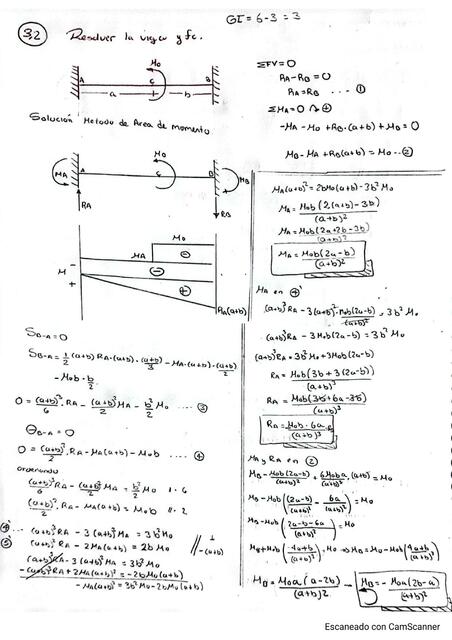 3.2 Resolver la viga y fc.
GI = 6-3 = 3
Mo
A
C
B
a
b
Solución: Metodo de Area de momento
ΣFV=0
RA-RB=0
RA=RB ... ①
ΣMA=0 ↷⊕
-MA-Mo+RB·(a+b)+MB=0
MB-MA+RB(a+b)=Mo...②
MA
A
Mo
C
B
MB
RA
RB
Mo
MA
M
-
+
RA(a+b)
δB-A=0
δB-A=1/2(a+b)RA·(a+b)·(a+b)/3-MA·(a+b)·(a+b)/2
-Mob·b/2
0=(a+b)³/6·RA-(a+b)²/2MA-b²/2Mo ... ③
θB-A=0
0=(a+b)²/2·RA-MA(a+b)-Mob ... ④
ordenando
(a+b)³/6RA-(a+b)²/2MA=b²/2Mo
(a+b)²/2·RA-MA(a+b)=Mob
(a+b)³RA-3(a+b)²MA=3b²Mo
(a+b)²RA-2MA(a+b)=2bMo
-(a+b)
(a+b)³RA-3(a+b)²MA=3b²Mo
-(a+b)³RA+2MA(a+b)²=-2bMo(a+b)
-MA(a+b)²=3b²Mo-2bMo(a+b)
MA(a+b)²=2bMo(a+b)-3b²Mo
MA=Mob(2(a+b)-3b)/(a+b)²
MA=Mob(2a+2b-3b)/(a+b)²
MA=Mob(2a-b)/(a+b)²
MA en
(a+b)³RA-3(a+b)²·Mob(2a-b)/(a+b)²=3b²Mo
(a+b)³RA-3Mob(2a-b)=3b²Mo
(a+b)³RA=3b²Mo+3Mob(2a-b)
RA=Mob(3b+3(2a-b))/(a+b)³
RA=Mob(3b+6a-3b)/(a+b)³
RA=Mob·6a/(a+b)³
MA y RA en ②
MB-Mob(2a-b)/(a+b)²+6Moba/(a+b)³·(a+b)=Mo
MB-Mob((2a-b)/(a+b)²-6a/(a+b)²)=Mo
MB-Mob((2a-b-6a)/(a+b)²)=Mo
MB+Mob·(4a+b)/(a+b)²=Mo⇒MB=Mo-Mob(4a+b)/(a+b)²
MB=Moa(a-2b)/(a+b)²→MB=-Moa(2b-a)/(a+b)²
Escaneado con CamScanner